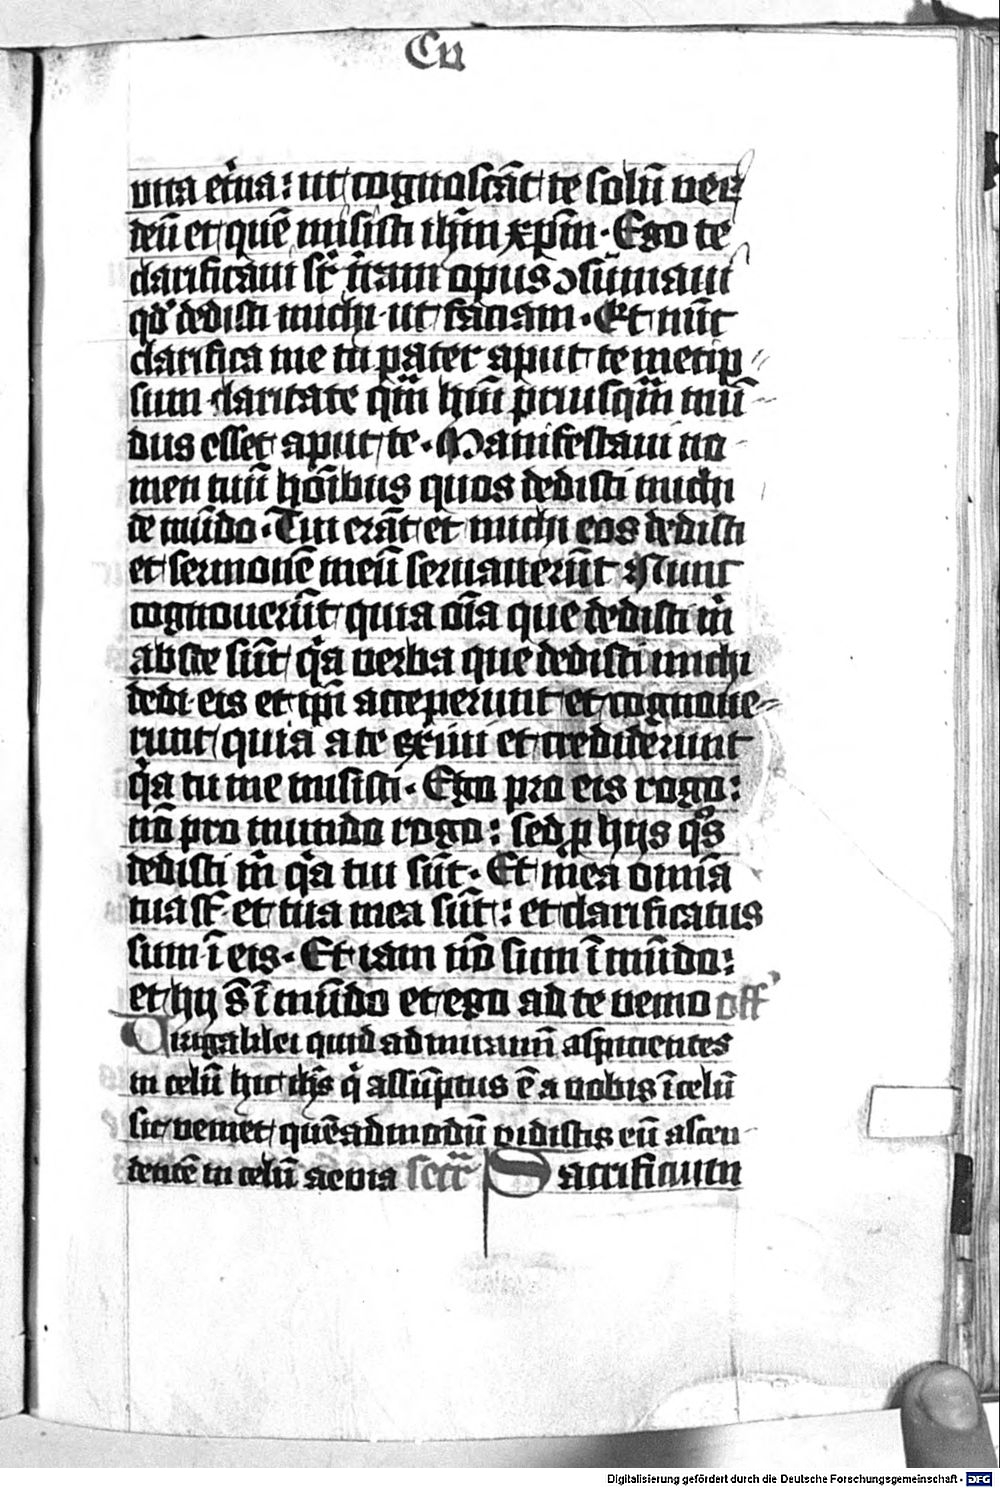 Cv
vita et͛na: ut cognoscāt te solū verū
deū et quē misisti ihm̄ xpm̄. Ego te
clarificavi sr̄ t̄ram opus ↄsūmavi
qd̛ dedisti michi ut faciam. Et nūc
clarifica me tu pater aput te metip⸗
sum claritate qm̄ hui priusqm̄ mū⸗
dus esset aput te. Manifestavi no-
men tuū hoībus quos dedisti michi
de mūdo. Tui erāt et michi eos dedisti
et sermonē meū servaverūt. Nunc
cognoverūt quia oīa que dedisti m̍
abs te sūt q̍a verba que dedisti michi
dedi eis et ip̄i acceperunt et cognove⸗
runt quia a te exiui et crediderunt
q̍a tu me misisti. Ego pro eis rogo:
nō pro mundo rogo: sed ꝓ hijs qͦs
dedisti m̍ q̍a tui sūt. Et mea omīa
tua sͭ et tua mea sūt: et clarificatus
sum ī eis. Et iam nō sum ī mūdo:
et hij s̄ ī mūdo et ego ad te venio off
Viri galilei quid admiramī aspicientes
in celū hic ihs̄ q̍ assūptus ē a vobis ī celū
sic veniet quēadmodū vidistis eū ascen-
dentē in celū aevia secr̄ Sacrificium
Digitalisierung gefördert durch die Deutsche Forschungsgemeinschaft - DFG